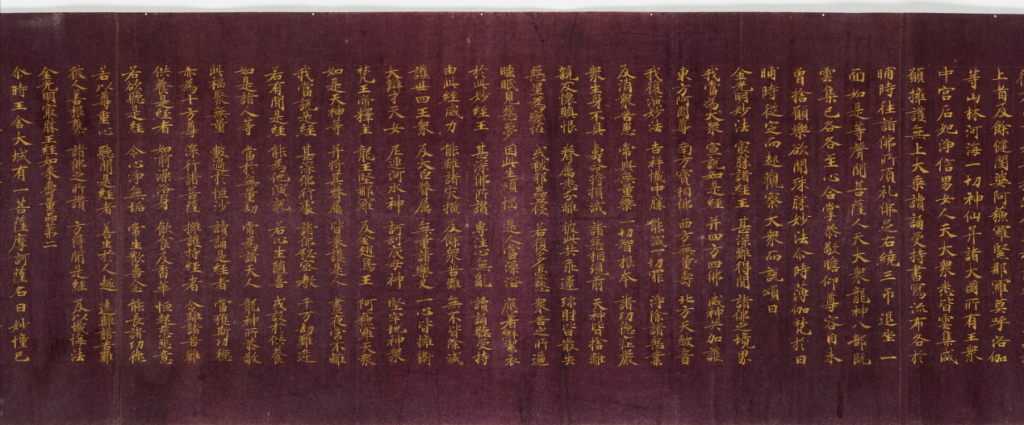 上首及餘健闥婆阿蘇羅緊那羅莫呼洛伽
等山林河海一切神仙并諸大國所有王眾
中宮后妃淨信男女人天大眾悉皆雲集咸
願擁護無上大乘讀誦受持書寫流布各於
晡時往詣佛所頂礼佛足右繞三帀退坐一
面如是等聲聞菩薩人天大眾龍神八部既
雲集已各各至心合掌恭敬瞻仰尊容目未
曾捨願樂欲聞殊勝妙法尒時薄伽梵於日
晡時從定而起觀察大眾而說頌曰
金光明妙法 最勝諸經王 甚深難得聞 諸佛之境界
我當為大眾 宣說如是經 并四方四佛 威神共加護
東方阿閦尊 南方寶相佛 西方無量壽 北方天鼓音
我復演妙法 吉祥懺中勝 能滅一切罪 淨除諸惡業
及消眾苦患 常與無量樂 一切智根本 諸功德莊嚴
眾生身不具 壽命將損減 諸惡相現前 天神皆捨離
親友懷瞋恨 眷屬悉分離 彼此共乖違 珍財皆散失
惡星為變怪 或被邪蠱侵 若復多憂愁 眾苦之所逼
睡眠見惡夢 因此生煩惱 是人當澡浴 應著鮮潔衣
於此妙經王 甚深佛所讚 專注心無亂 讀誦聽受持
由此經威力 能離諸災橫 及餘眾苦難 無不皆除滅
護世四王眾 及大臣眷屬 無量諸藥叉 一心皆擁衛
大辯才天女 尼連河水神 訶利底母神 堅牢地神眾
梵王帝釋主 龍王緊那羅 及金翅鳥王 阿蘇羅天眾
如是天神等 并將其眷屬 皆來護是人 晝夜常不離
我當說是經 甚深佛行處 諸佛祕密教 千万劫難逢
若有聞是經 能為他演說 若心生隨喜 或設於供養
如是諸人等 當於無量劫 常為諸天人 龍神所恭敬
此福聚無量 數過於恒沙 讀誦是經者 當獲斯功德
亦為十方尊 深行諸菩薩 擁護持經者 令離諸苦難
供養是經者 如前澡浴身 飲食及香華 恒起慈悲意
若欲聽是經 令心淨無垢 常生歡喜念 能長諸功德
若以尊重心 聽聞是經者 善生於人趣 遠離諸苦難
彼人善根熟 諸佛之所讚 方得聞是經 及以懺悔法
金光明最勝王經如來壽量品第二
尒時王舍大城有一菩薩摩訶薩名曰妙幢已